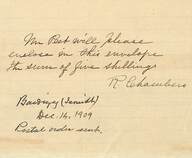 Mr Bert will please
enclose in this envelope
the sum of five shillings
R Chambers
(Smith)
Dec. 14, 1909
Postal order sent.